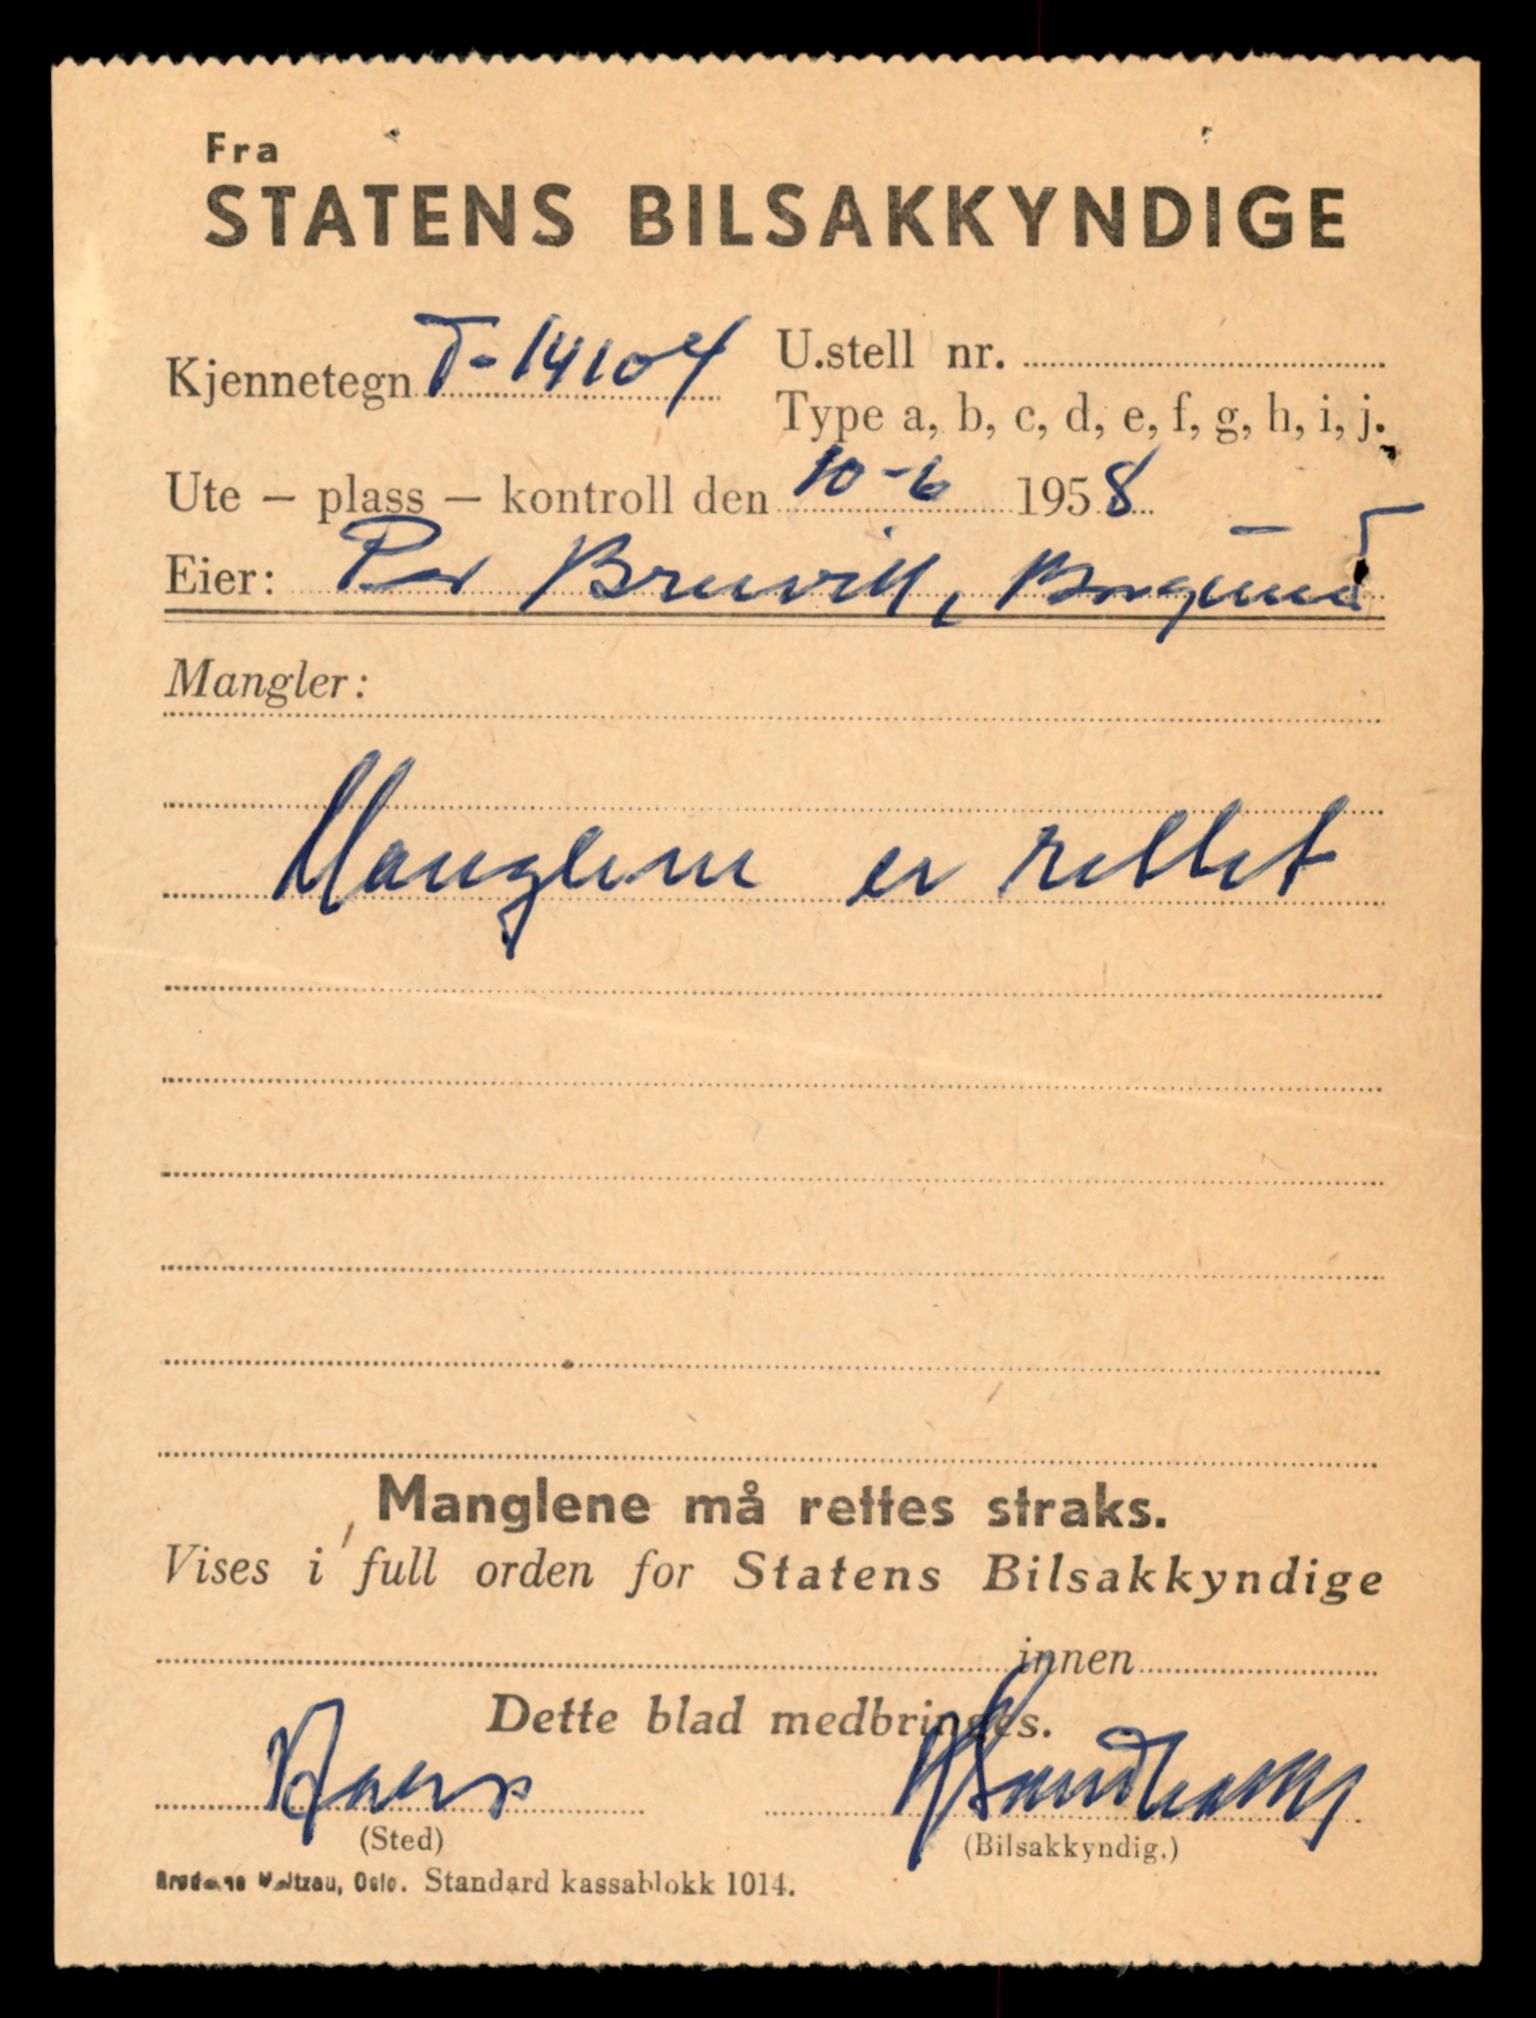 Fra
STATENS BILSAKKYNDIGE
Kjennetegn T-14104 U.stell nr.
Type a, b, c, d, e, f, g, h, i, j.
Ute – plass – kontroll den 10-6 1958
Eier: Per Bruvik, Borgund
Mangler:
Manglene er rettet
Manglene må rettes straks.
Vises i full orden for Statens Bilsakkyndige
innen
Dette blad medbringes.
(Sted) (Bilsakkyndig.)
Brødrene Maltzau, Oslo. Standard kassablokk 1014.